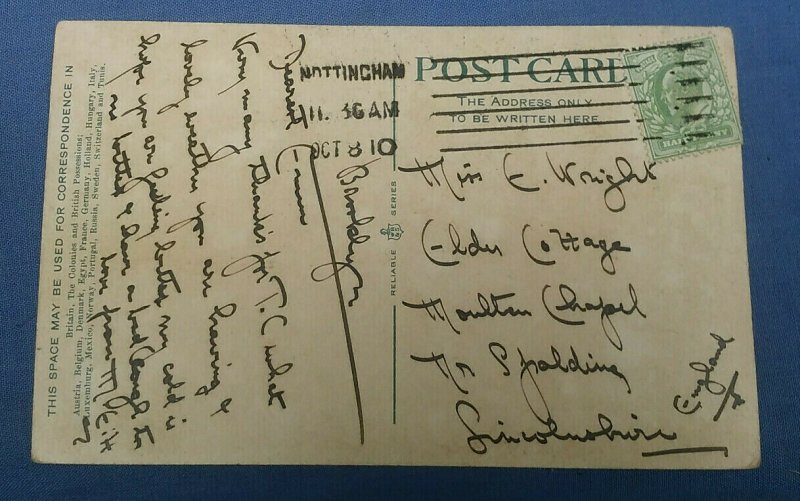 THIS SPACE MAY BE USED FOR CORRESPONDENCE IN
Britain, The Colonies and British Possessions;
Austria, Belgium, Denmark, Egypt, France, Germany, Holland, Hungary, Italy,
Luxemburg, Mexico, Norway, Portugal, Russia, Sweden, Switzerland and Tunis.
Brooklyn
Dearest
Very many thanks for P.C what
lovely weather you are having &
hope you are feeling better my cold is
no better & have a bad cough too
love from
NOTTINGHAM
11.30AM
OCT 8 10
RELIABLE SERIES
POST CARD
THE ADDRESS ONLY
TO BE WRITTEN HERE
HALFPENNY
Miss E. Wright
Elder Cottage
Moulton Chapel
Nr Spalding
Lincolnshire
England